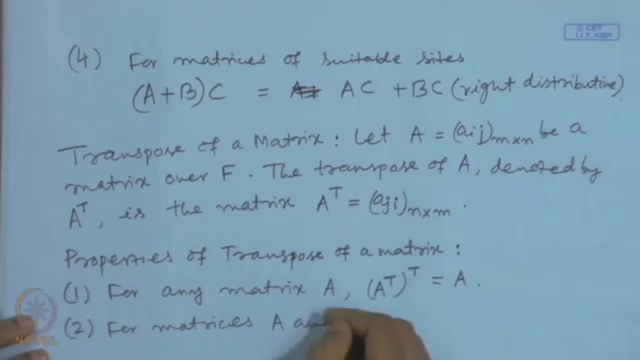 © CET
I.I.T. KGP
(4) For matrices of suitable sites
(A+B)C = AC + BC (right distributive)
Transpose of a Matrix : Let A = (aij)m×n be a
matrix over F. The transpose of A, denoted by
A^T, is the matrix A^T = (aji)n×m.
Properties of Transpose of a matrix :
(1) For any matrix A, (A^T)^T = A.
(2) For matrices A an
NPTEL